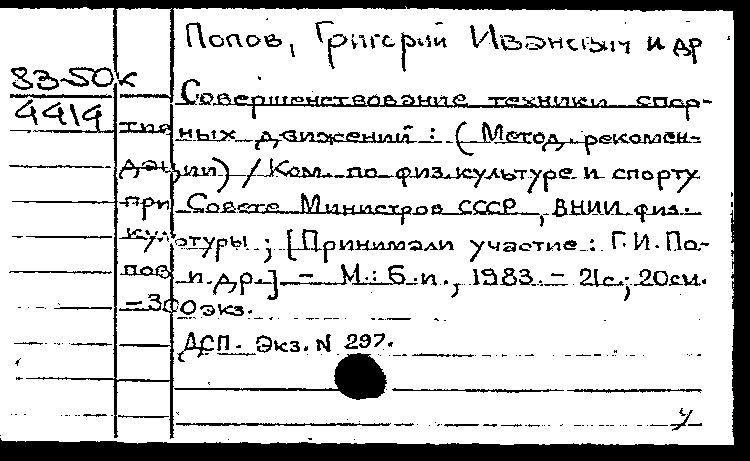 Попов, Григорий Иванович и др
83-50к
4414
Совершенствование техники спор-
тивных движений : ( Метод. рекомен-
дации) / Ком. по физ.культуре и спорту
при Совете Министров СССР, ВНИИ физ.
культуры ; [Принимали участие : Г.И. По-
пов и др.] - М.: Б.и., 1983. - 21с.; 20см.
- 300экз.
ДСП. Экз. N 297.
У